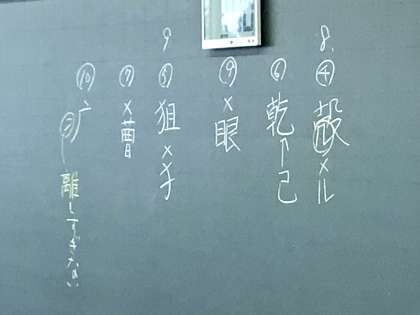 8. ④ 殻×メル
⑥ 乾↑己
⑨ ×眼
9 ⑤ 狙××子
⑦ ×曹
⑩ 广 離しすぎない